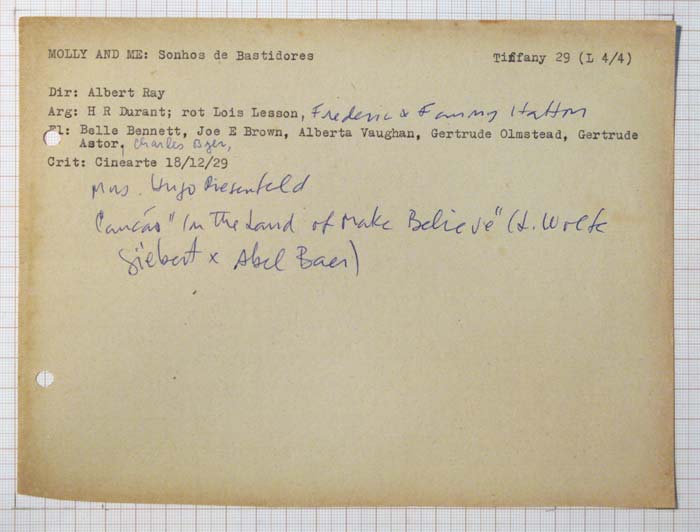 MOLLY AND ME: Sonhos de Bastidores Tiffany 29 (L 4/4)
Dir: Albert Ray
Arg: H R Durant; rot Lois Lesson, Frederic & Fanny Hatton
El: Belle Bennett, Joe E Brown, Alberta Vaughan, Gertrude Olmstead, Gertrude
Astor, Charles Byer,
Crit: Cinearte 18/12/29
Mus. Hugo Riesenfeld
Canção "In the Land of Make Believe" (L. Wolfe
Giebert x Abel Baer)